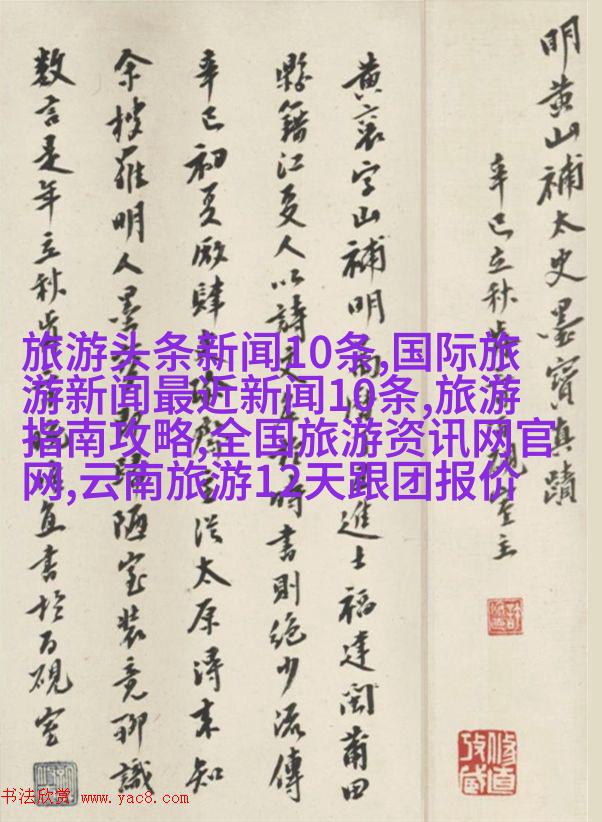 明黄山補太史墨寶真蹟
辛巳立秋硯室主
黄襄字山補明進士福建閩莆田
縣籍江夏人以詩文時書則絶少流傳
辛巳初夏厰肆従太原得来知
余搜羅明人墨陋室装竟聊識
数言是年立秋書於百硯室
旅游头条新闻10条,国际旅
游新闻最近新闻10条,旅游
指南攻略,全国旅游资讯网官
网,云南旅游12天跟团报价
书法欣赏 www.yac8.com